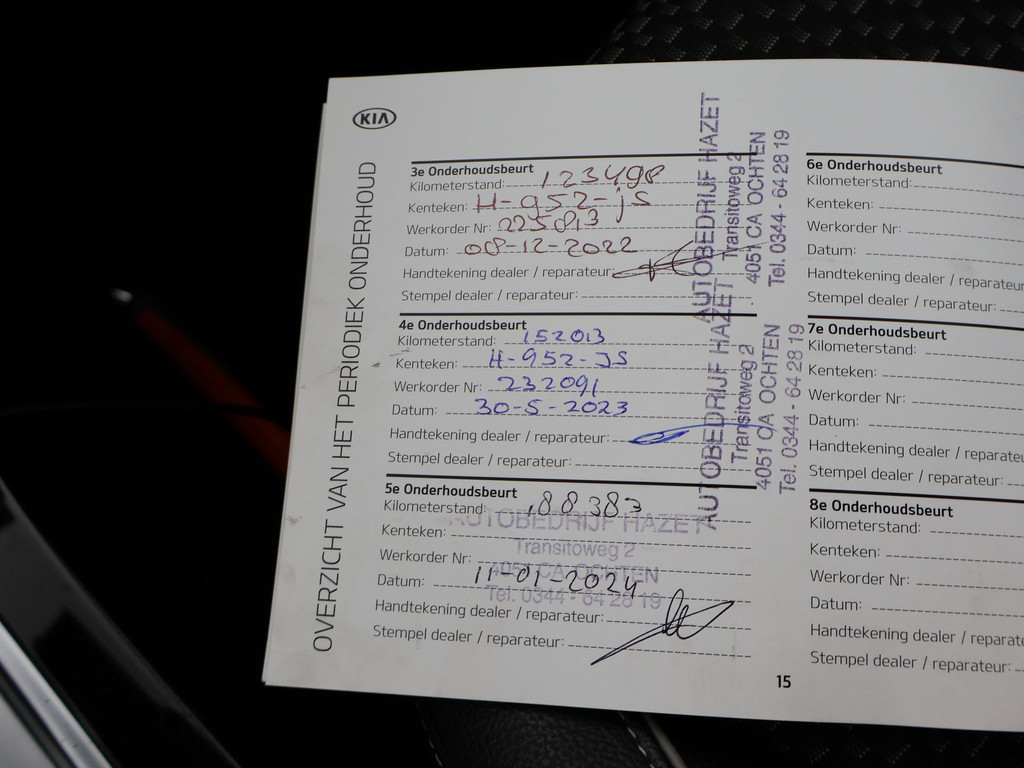 KIA
OVERZICHT VAN HET PERIODIEK ONDERHOUD
3e Onderhoudsbeurt
Kilometerstand: 123498
Kenteken: H-952-JS
Werkorder Nr: 225813
Datum: 08-12-2022
Handtekening dealer / reparateur:
Stempel dealer / reparateur:
AUTOBEDRIJF HAZET
Transitoweg 2
4051 CA OCHTEN
Tel. 0344 - 64 28 19
4e Onderhoudsbeurt
Kilometerstand: 152013
Kenteken: H-952-JS
Werkorder Nr: 232091
Datum: 30-5-2023
Handtekening dealer / reparateur:
Stempel dealer / reparateur:
AUTOBEDRIJF HAZET
Transitoweg 2
4051 CA OCHTEN
Tel. 0344 - 64 28 19
5e Onderhoudsbeurt
Kilometerstand: 188383
Kenteken:
Werkorder Nr:
Datum: 11-01-2024
Handtekening dealer / reparateur:
Stempel dealer / reparateur:
AUTOBEDRIJF HAZET
Transitoweg 2
4051 CA OCHTEN
Tel. 0344 - 64 28 19
6e Onderhoudsbeurt
Kilometerstand:
Kenteken:
Werkorder Nr:
Datum:
Handtekening dealer / reparateur
Stempel dealer / reparateur:
7e Onderhoudsbeurt
Kilometerstand:
Kenteken:
Werkorder Nr:
Datum:
Handtekening dealer / reparateu
Stempel dealer / reparateur:
8e Onderhoudsbeurt
Kilometerstand:
Kenteken:
Werkorder Nr:
Datum:
Handtekening dealer / reparate
Stempel dealer / reparateur:
15